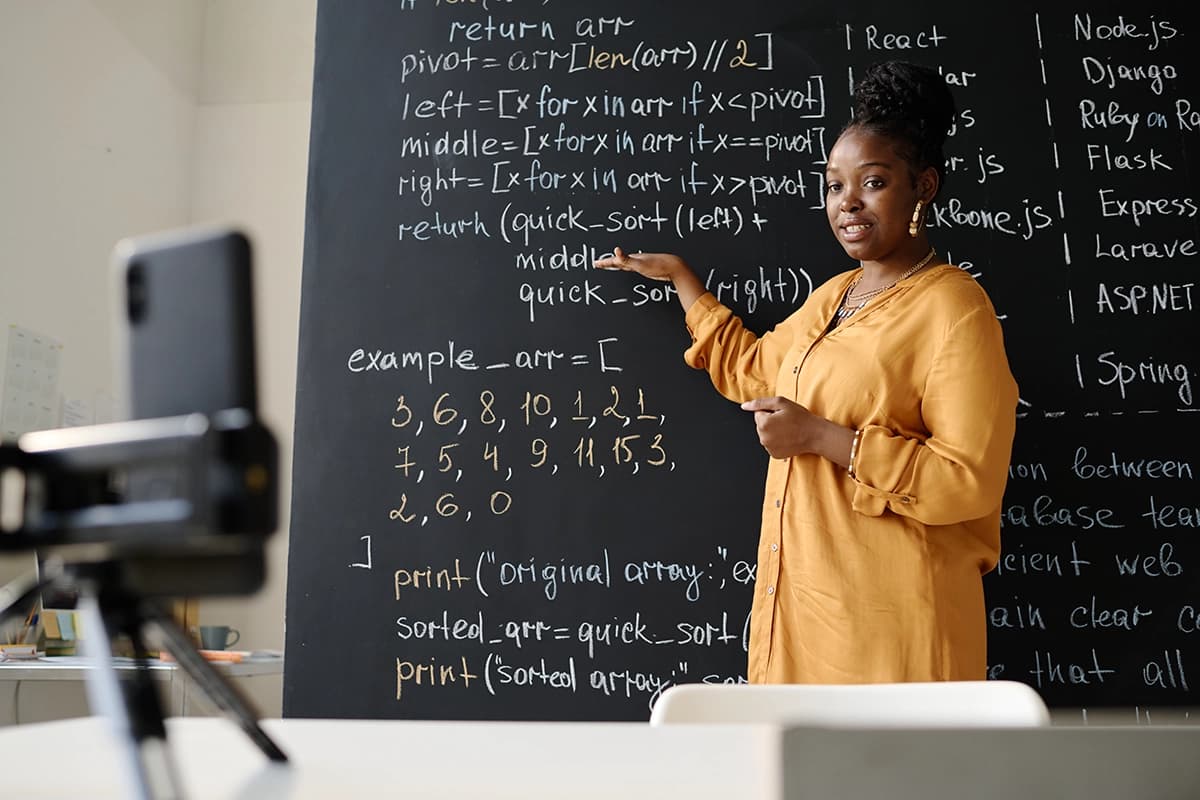 return arr
pivot = arr[len(arr)//2]
left = [x for x in arr if x < pivot]
middle = [x for x in arr if x == pivot]
right = [x for x in arr if x > pivot]
return (quick_sort (left) +
middle
quick_sor (right))
example_arr = [
3, 6, 8, 10, 1, 2, 1,
7, 5, 4, 9, 11, 15, 3,
2, 6, 0
]
print ("original array:",
sorted_arr = quick_sort(
print ("sorted array:"
| React
| Node.js
| Django
| Ruby on
| Flask
| Express
|
| ASP.NET
| Spring
between
team
web
clear
that all